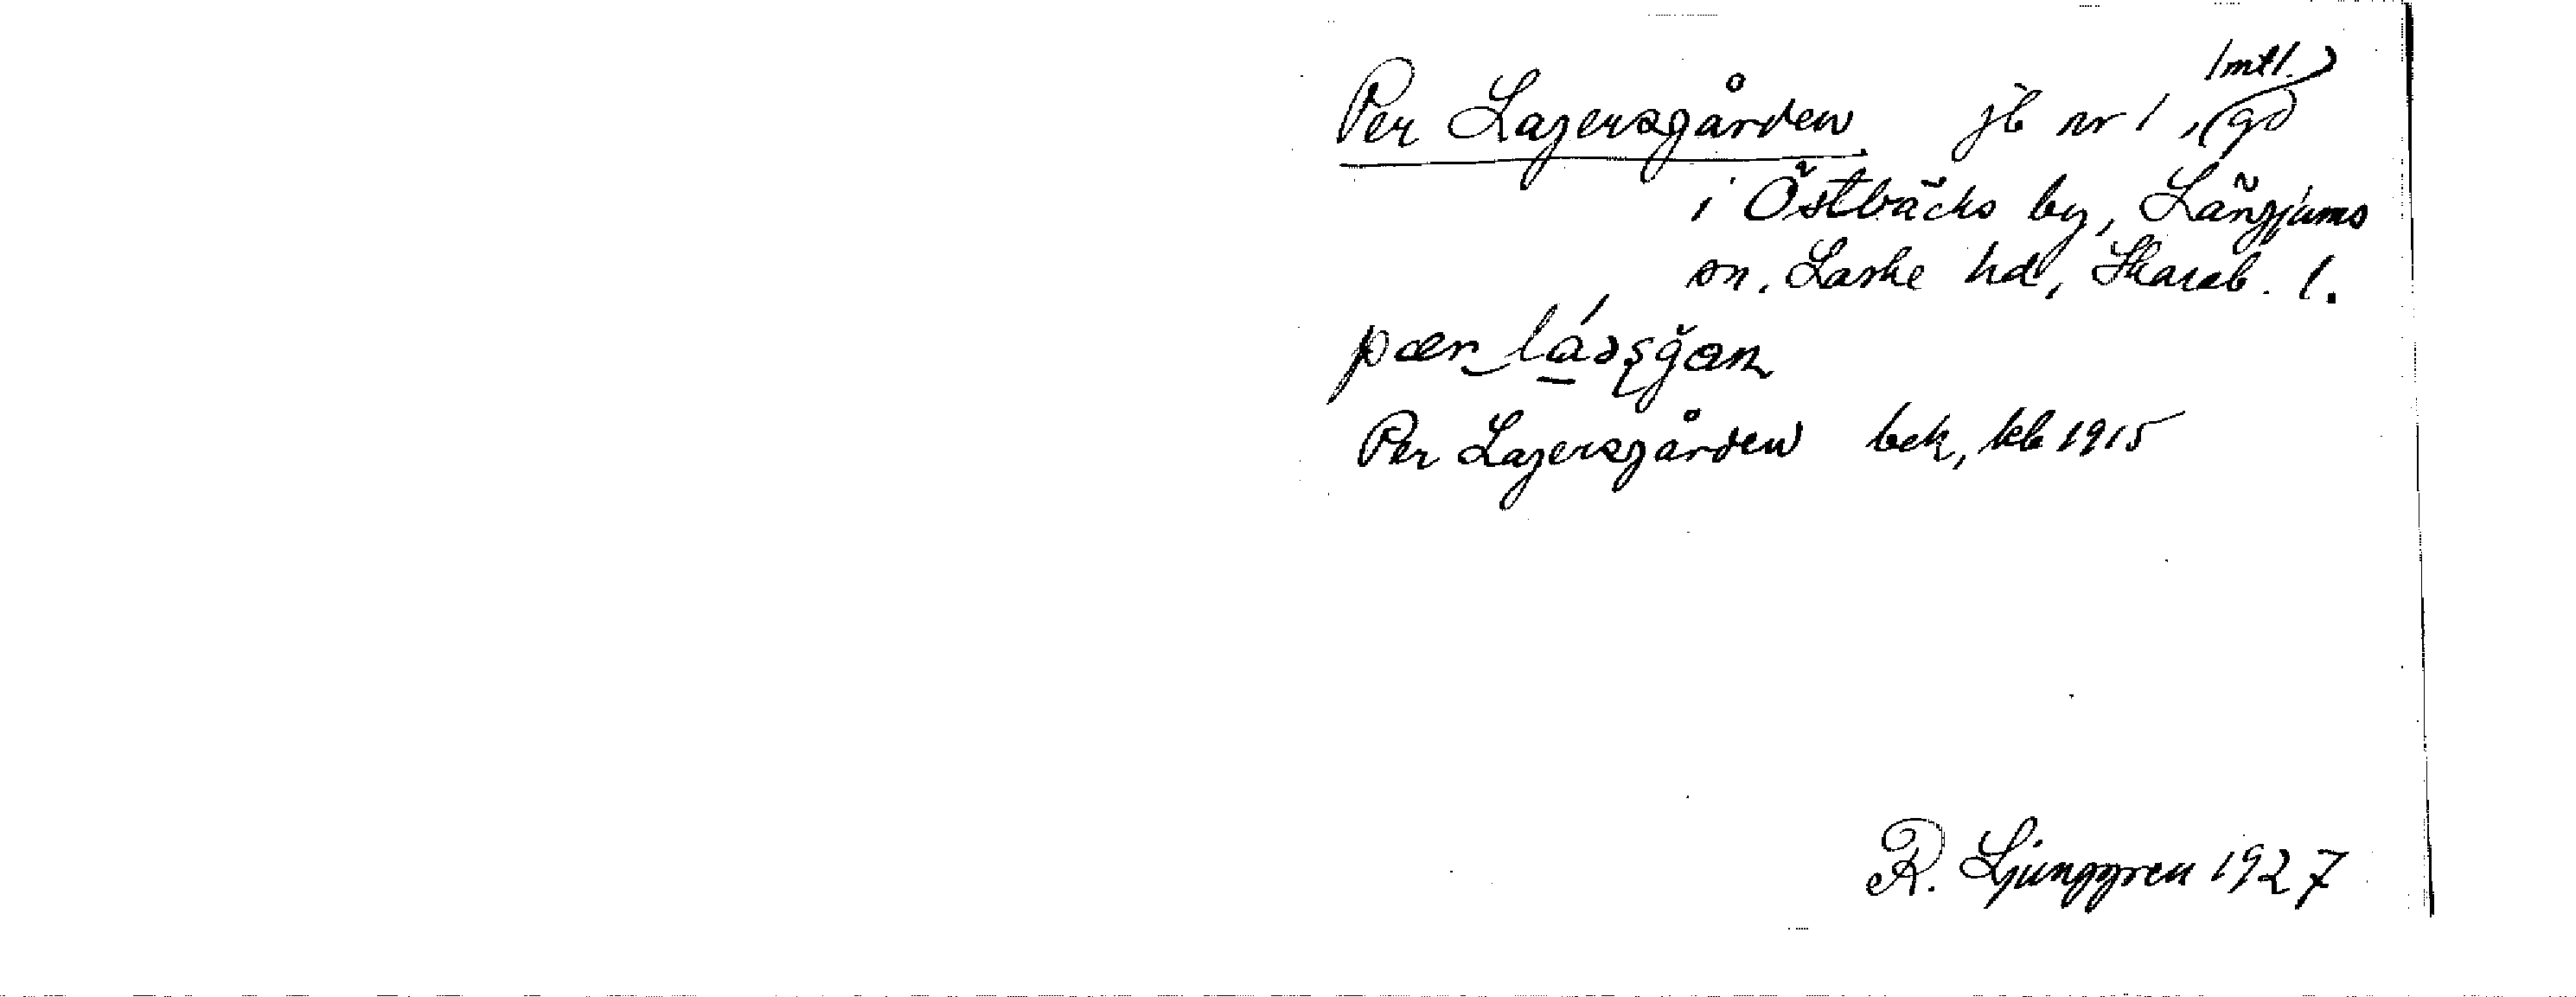 Per Lagersgården jb nr 1, (gd 1 mtl.)
i Östbäcks by, Långjums
sn. Laske hd, Skarab. l.
Per Lagersgården bek, kb 1915
R. Ljunggren 1927